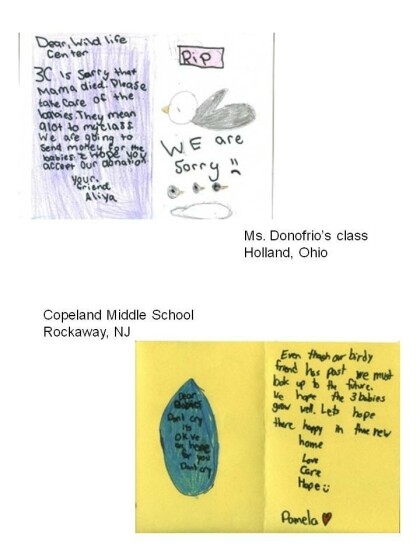 Dear, Wild life
Center
3C is sorry that
Mama died. Please
take care of the
babies. They mean
alot to my class
We are going to
send money for the
babies. I Hope you
accept our donation
Your,
friend
Aliya
RiP
WE are
Sorry
Ms. Donofrio's class
Holland, Ohio
Copeland Middle School
Rockaway, NJ
Dear
Babies
Dont cry
its
OK we
are here
for you
Dont cry
Even though our birdy
friend has past we must
look up to the future.
We hope the 3 babies
grow well. Lets hope
there happy in thee new
home
Love
Care
Hope
Pamela